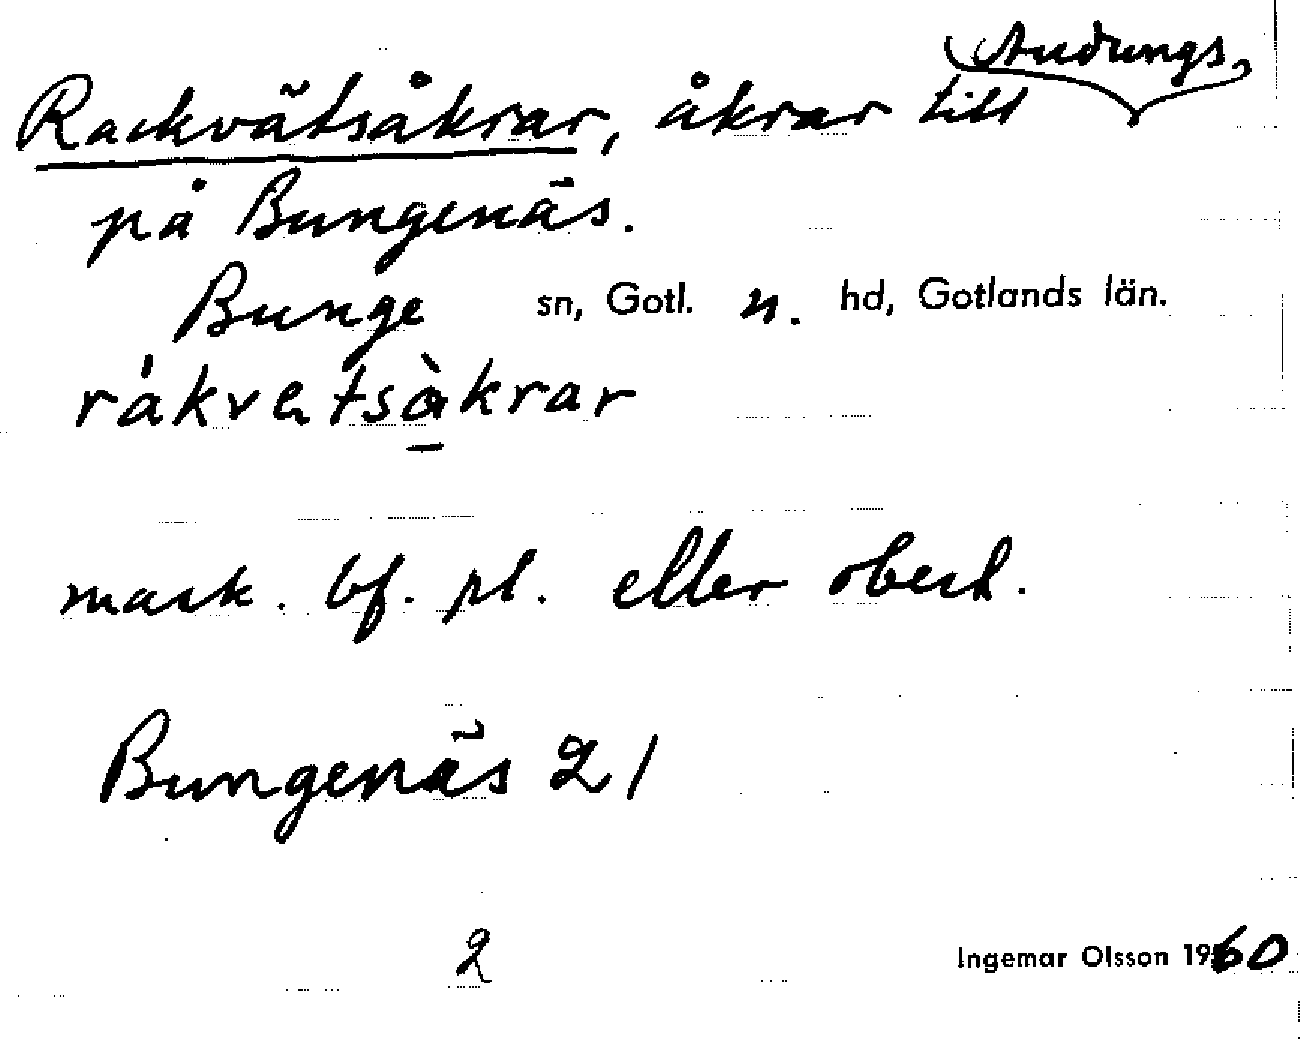 Rackvätsåkrar, åkrar till Audungs
på Bungenäs.
Bunge sn, Gotl. n. hd, Gotlands län.
rákvetsàkrar
mask. bf. pl. eller obest.
Bungenäs 21
2
Ingemar Olsson 1960